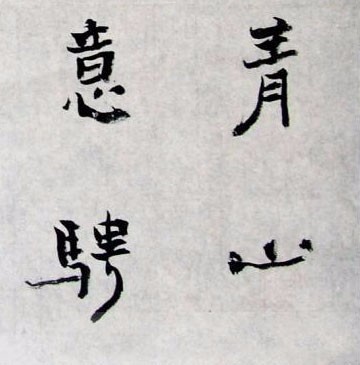 青山
意騁